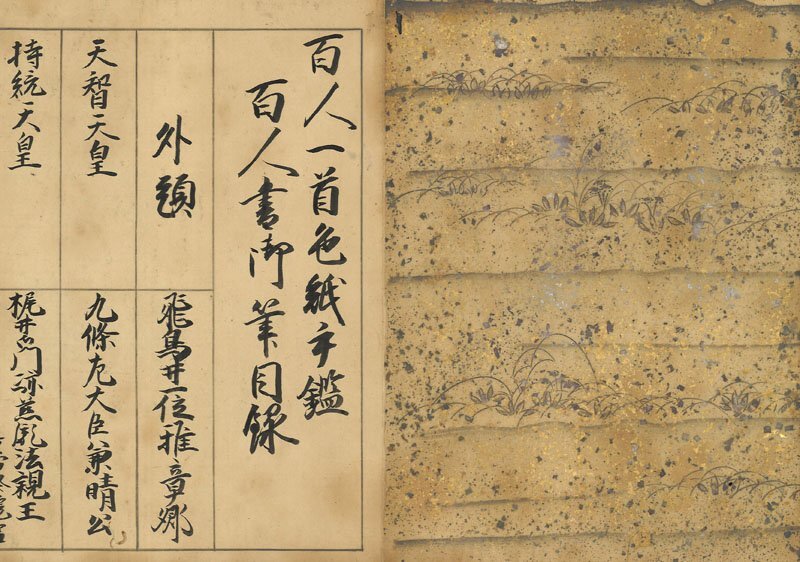 百人一首色紙手鑑
百人書御筆目録
外題
飛鳥井一位雅章卿
天智天皇
九條左大臣兼晴公
持統天皇
梶井門跡慈胤法親王